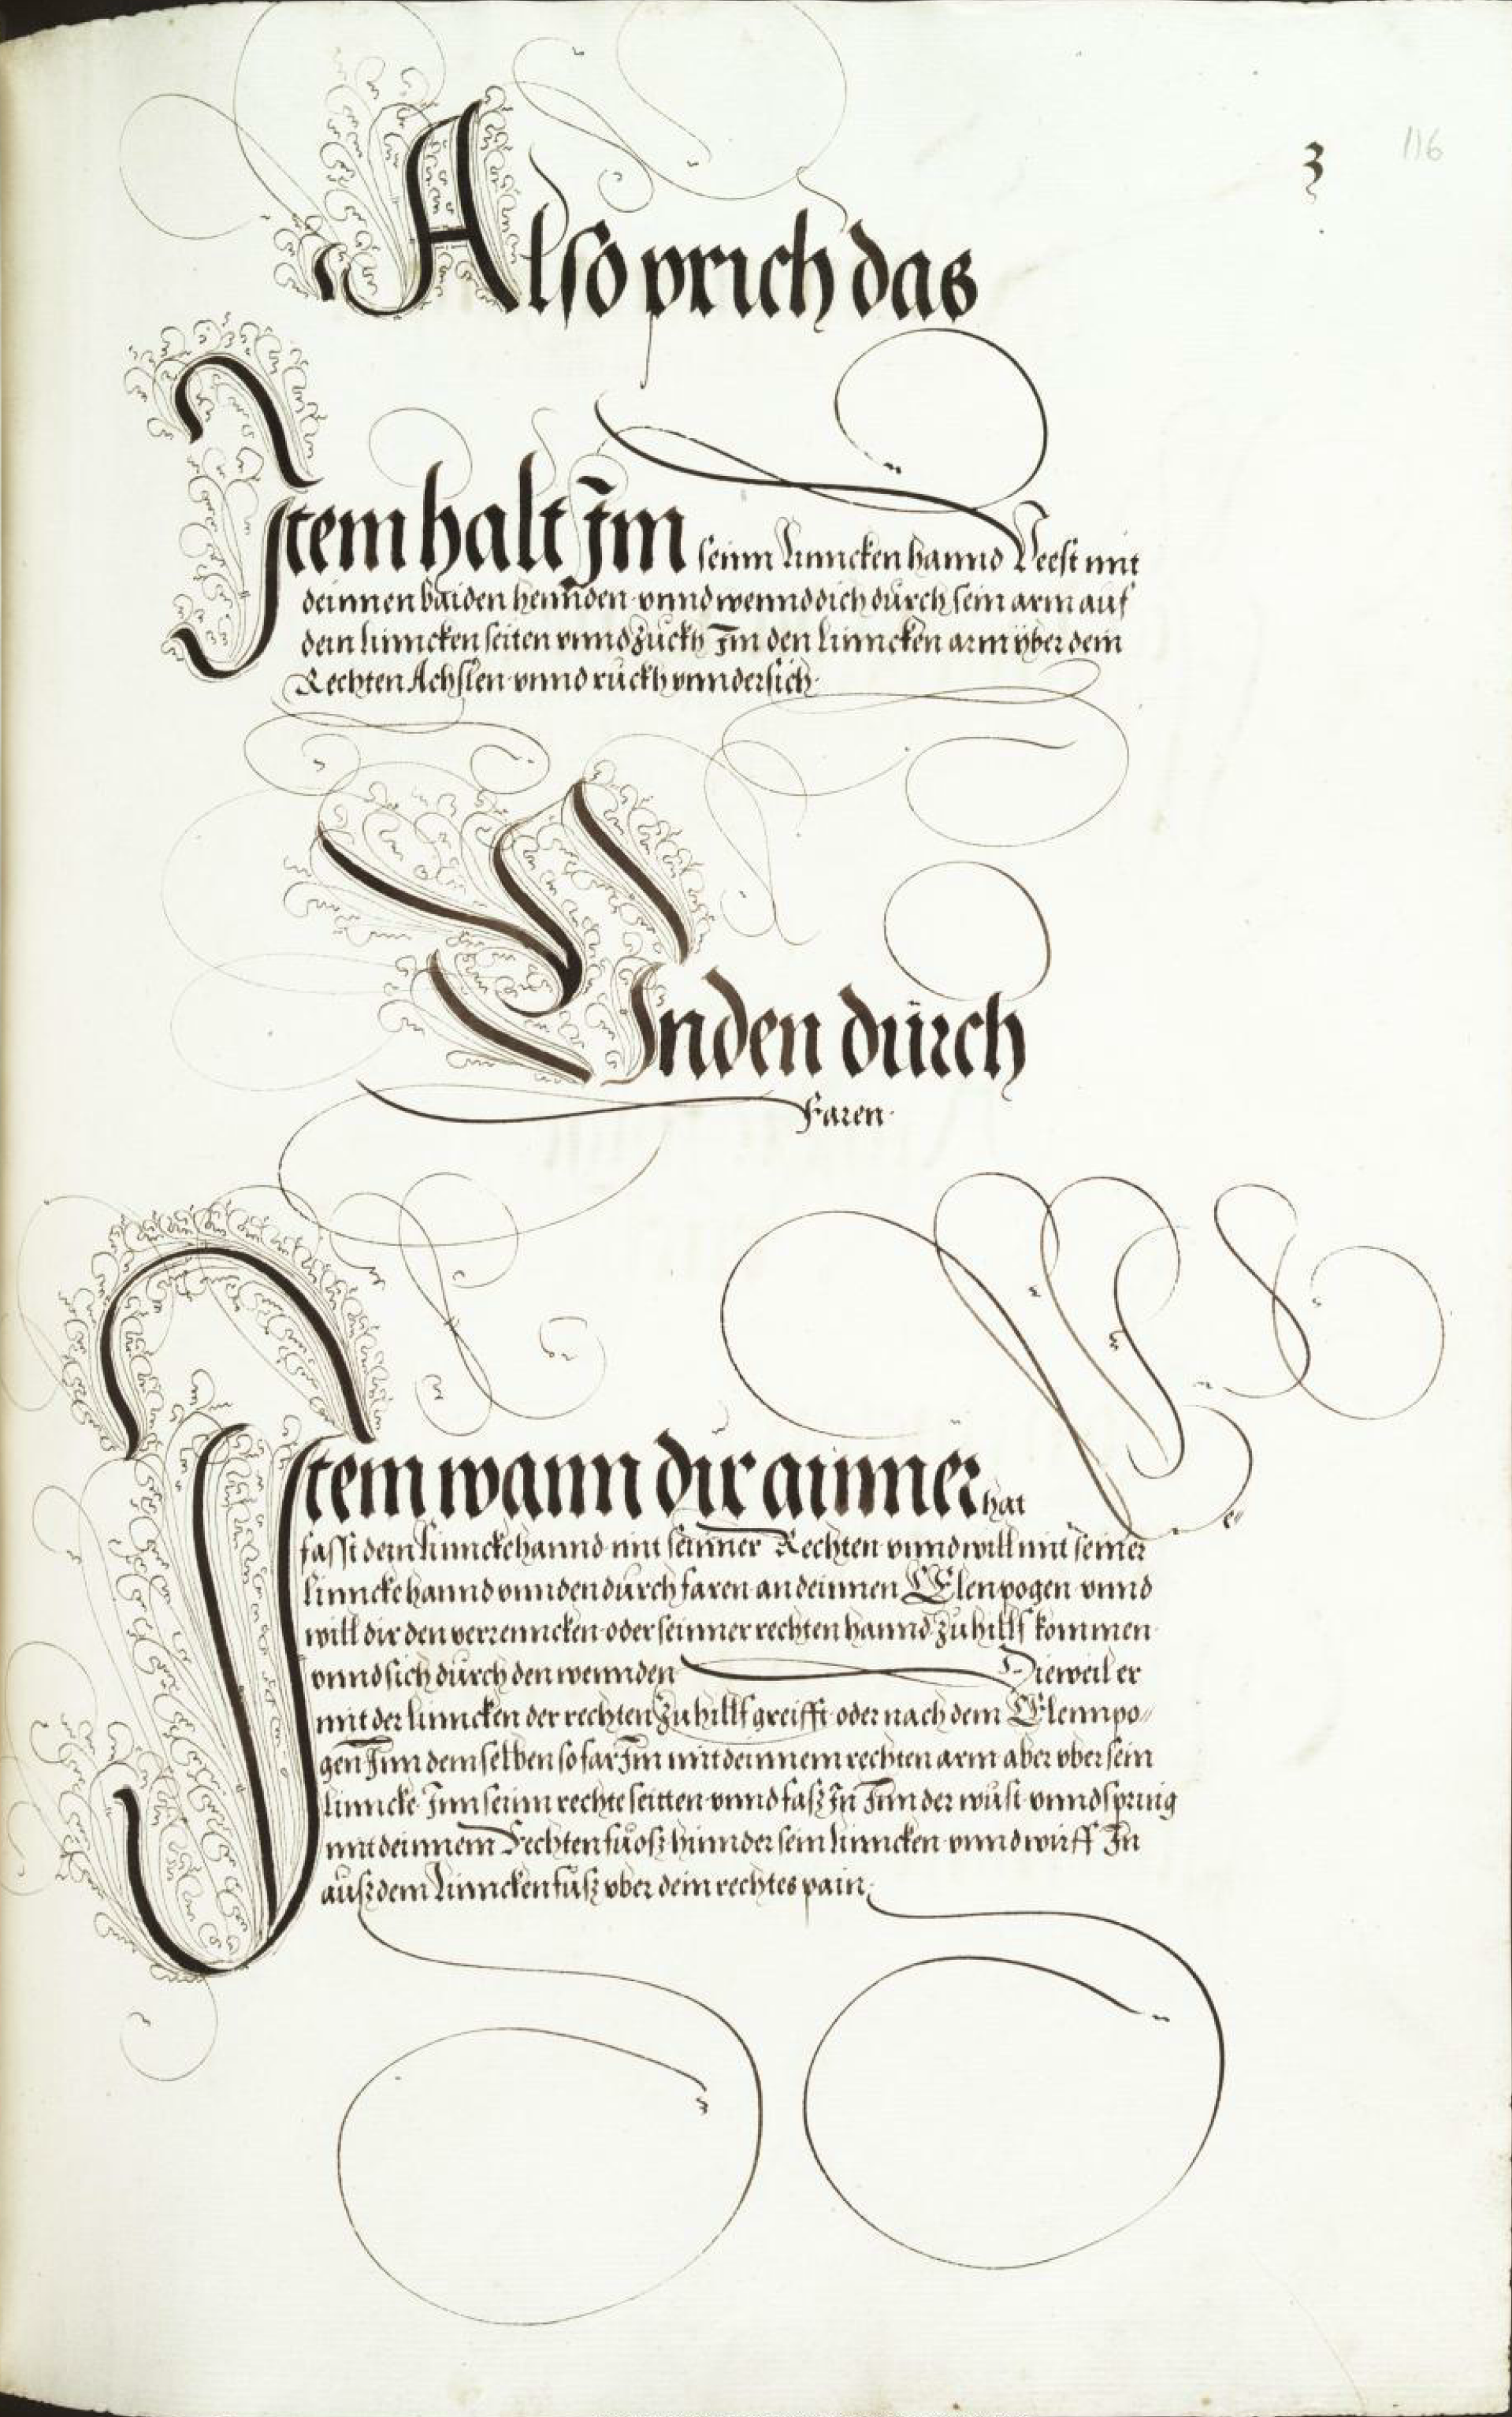 116
3
Also prich das
Item halt Im seinn linncken hannd Veest mit
deinnen baiden hennden vnnd wennd dich dúrch sein arm auf
dein linncken seiten vnnd zuckh Im den linncken arm yber dein
Rechten Achslen vnnd rückh vnndersich
VInden dúrch
Faren
Item wann dir ainner hat
fasst dein linncke hannd mit seinner Rechten vnnd will mit seiner
linncke hannd vnnden dúrch faren an deinnen Elenpogen vnnd
will dir den verrenncken oder seinner rechten hannd zu hillf kommen
vnnd sich dúrch den wennden Dieweil er
mit der linncken der rechten zu hillf greifft oder nach dem Elennpo"
gen Inn dem selben so far Im mit deinnem rechten arm aber vber sein
linncke Inn seinn rechte seitten vnnd fasz In Inn der wúst vnnd spring
mit deinnem Rechten fúosz hinnder sein linncken vnnd wirff In
aúsz dem linncken fúsz vber dein rechtes pain